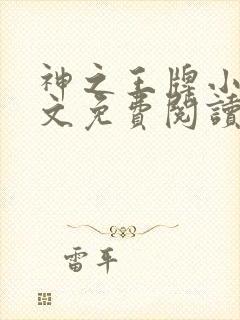 神之王牌小
文免費閱讀
雷平